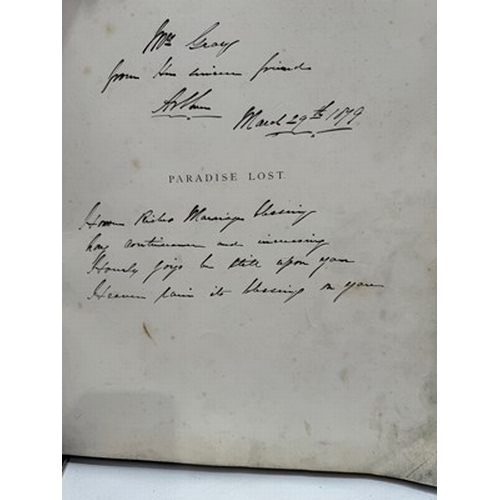 Gray
from His sincere friend
March 29th 1879
PARADISE LOST
Honour Riches Marriage blessing
Long continuance and increasing
Hourly joys be still upon you
Heaven rain its blessings on you